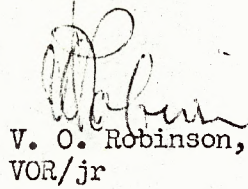 V. O. Robinson,
VOR/jr